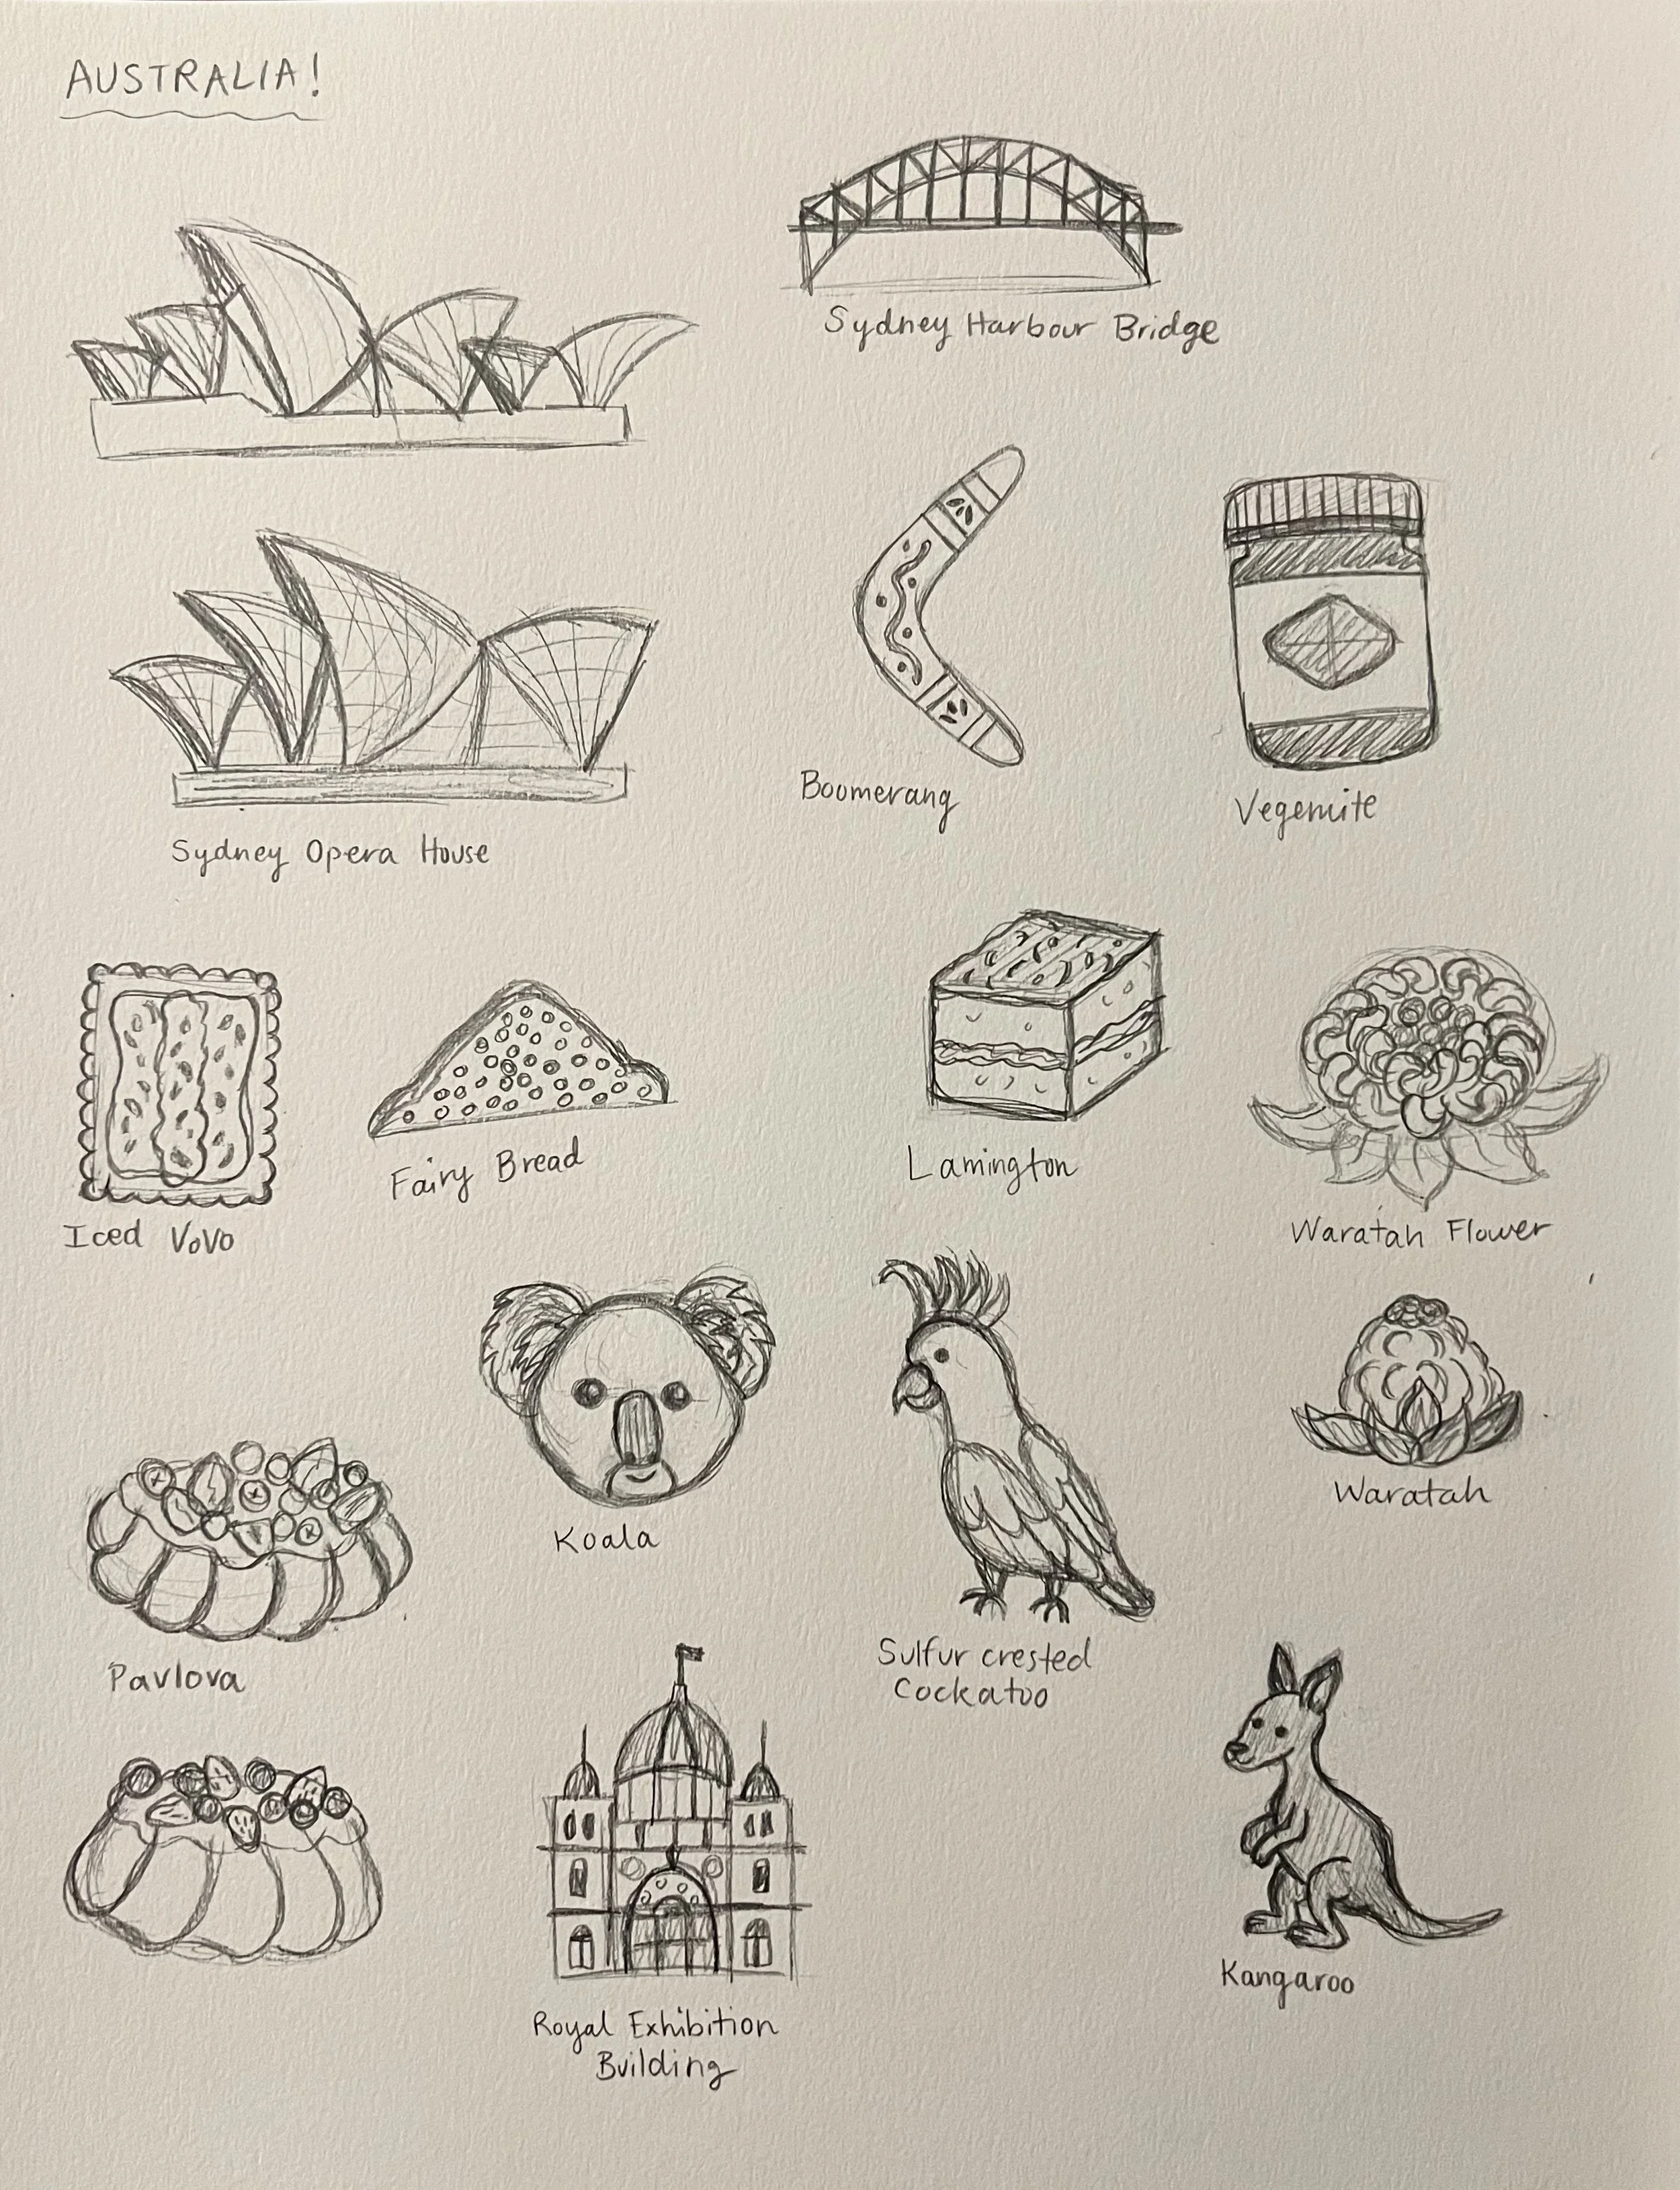 AUSTRALIA!
Sydney Harbour Bridge
Boomerang
Vegemite
Sydney Opera House
Iced VoVo
Fairy Bread
Lamington
Waratah Flower
Koala
Waratah
Pavlova
Sulfur crested
Cockatoo
Kangaroo
Royal Exhibition
Building